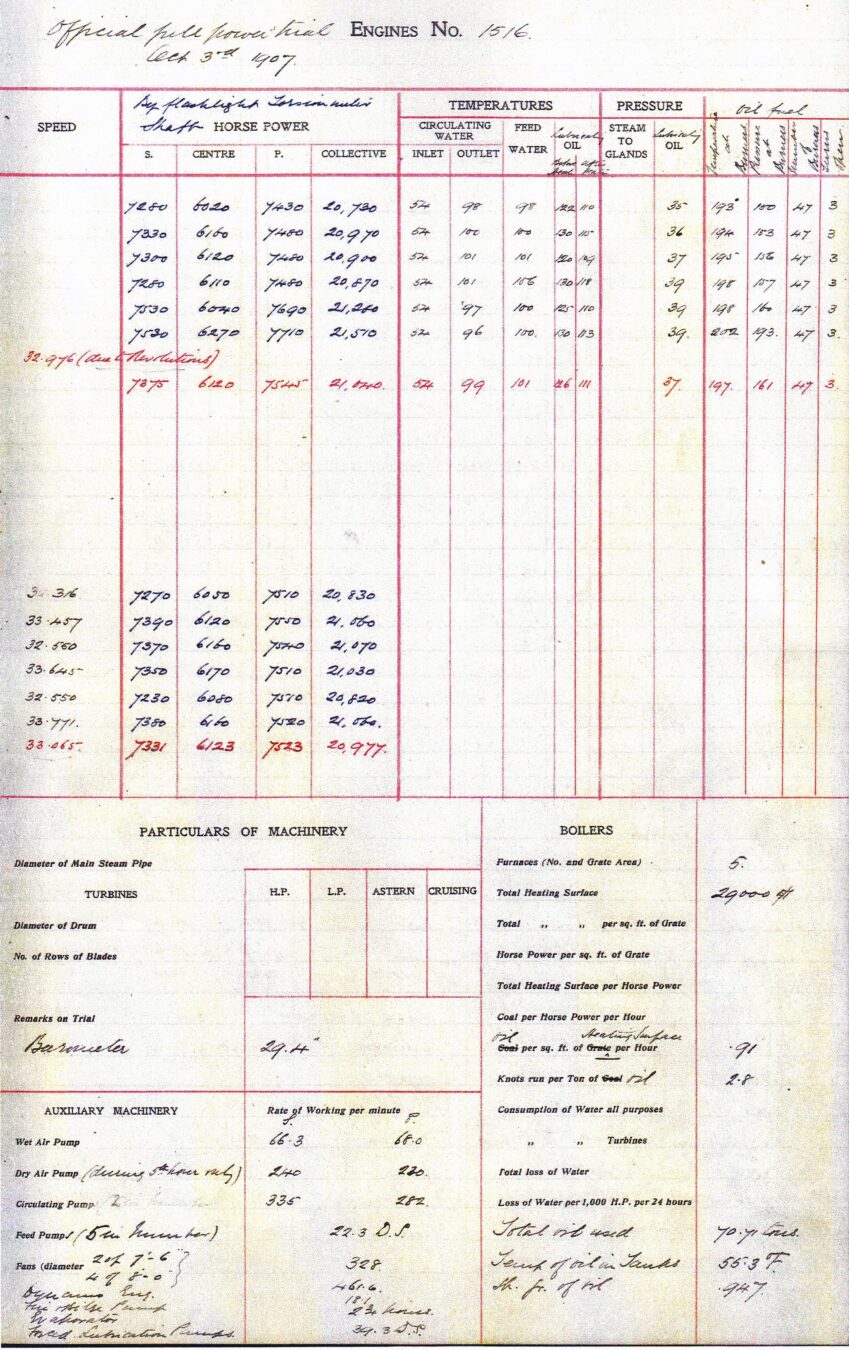 Official full power trial ENGINES No. 1516.
Oct 3rd 1907.
By flashlight Torsionmeter TEMPERATURES PRESSURE Oil fuel
SPEED Shaft HORSE POWER CIRCULATING WATER FEED WATER Lubricating OIL STEAM TO GLANDS Lubricating OIL Temperature at Burners Pressure at Burners Number of Burners
S. CENTRE P. COLLECTIVE INLET OUTLET
7280 6020 7430 20,730 52 98 98 122 110 35 193° 150 47 3
7330 6160 7480 20,970 52 100 100 130 115 36 194 153 47 3
7300 6120 7480 20,900 52 101 101 120 109 37 195 156 47 3
7280 6110 7480 20,870 52 101 156 130 118 39 198 157 47 3
7530 6040 7690 21,260 52 97 100 125 110 39 198 160 47 3
7530 6270 7710 21,510 52 96 100. 130 113 39. 202 193. 47 3.
32.976 (due to Revolutions)
7375 6120 7545 21,040. 52 99 101 126 111 37. 197. 161 47 3.
32.316 7270 6050 7510 20,830
33.457 7390 6120 7550 21,060
32.550 7370 6160 7540 21,070
33.645 7350 6170 7510 21,030
32.550 7230 6080 7510 20,820
33.771. 7380 6160 7520 21,060.
33.065. 7331 6123 7523 20,977.
PARTICULARS OF MACHINERY
Diameter of Main Steam Pipe
TURBINES H.P. L.P. ASTERN CRUISING
Diameter of Drum
No. of Rows of Blades
Remarks on Trial
Barometer 29.4"
AUXILIARY MACHINERY Rate of Working per minute
S. P.
Wet Air Pump 66.3 68.0
Dry Air Pump (during 5th hour only) 240 230.
Circulating Pump 2 335 282.
Feed Pumps (5 in Number) 22.3 D.S.
Fans (diameter 2 of 7'-6" 328
4 of 8'-0"
Dynamo Eng. 461.6.
Fire & Bilge Pump 18.1
Evaporator 2¾ hours.
Forced Lubrication Pumps. 39.3 D.S.
BOILERS
Furnaces (No. and Grate Area) 5.
Total Heating Surface 29000
Total " " per sq. ft. of Grate
Horse Power per sq. ft. of Grate
Total Heating Surface per Horse Power
Coal per Horse Power per Hour
Oil Heating Surface
Coal per sq. ft. of Grate per Hour .91
Knots run per Ton of Coal Oil 2.8
Consumption of Water all purposes
" " Turbines
Total loss of Water
Loss of Water per 1,000 H.P. per 24 hours
Total oil used 70.71 tons.
Temp of oil in Tanks 55.3°F.
Sp. Gr. of oil .947